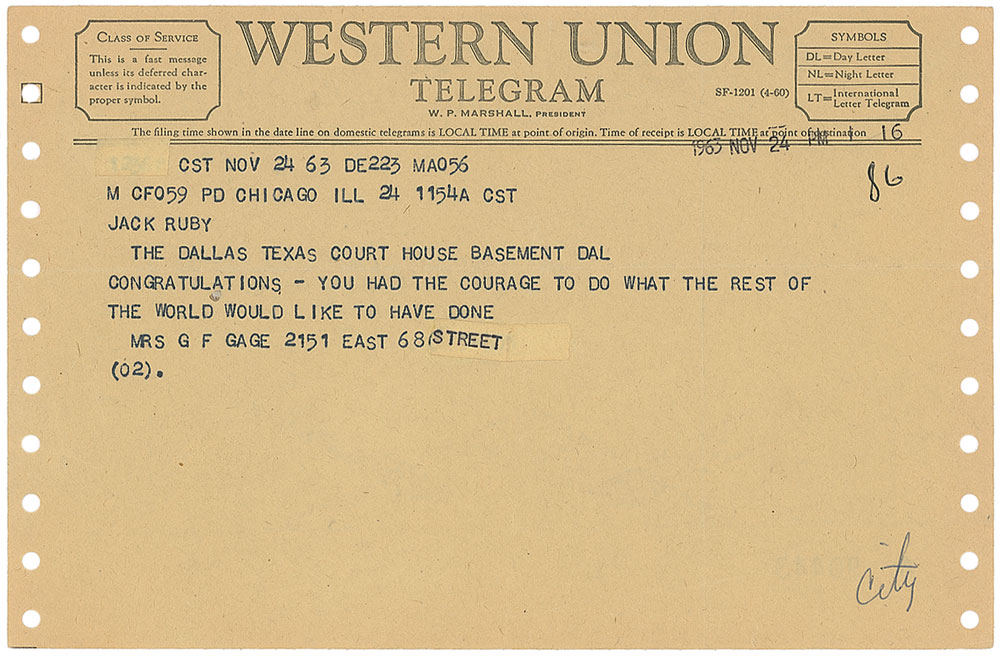 CLASS OF SERVICE
This is a fast message
unless its deferred char-
acter is indicated by the
proper symbol.
WESTERN UNION
TELEGRAM
W. P. MARSHALL, PRESIDENT
SF-1201 (4-60)
SYMBOLS
DL=Day Letter
NL=Night Letter
LT=International
Letter Telegram
The filing time shown in the date line on domestic telegrams is LOCAL TIME at point of origin. Time of receipt is LOCAL TIME at point of destination
1963 NOV 24 PM 1 16
86
CST NOV 24 63 DE223 MA056
M CF059 PD CHICAGO ILL 24 1154A CST
JACK RUBY
THE DALLAS TEXAS COURT HOUSE BASEMENT DAL
CONGRATULATIONS - YOU HAD THE COURAGE TO DO WHAT THE REST OF
THE WORLD WOULD LIKE TO HAVE DONE
MRS G F GAGE 2151 EAST 68 STREET
(02).
city